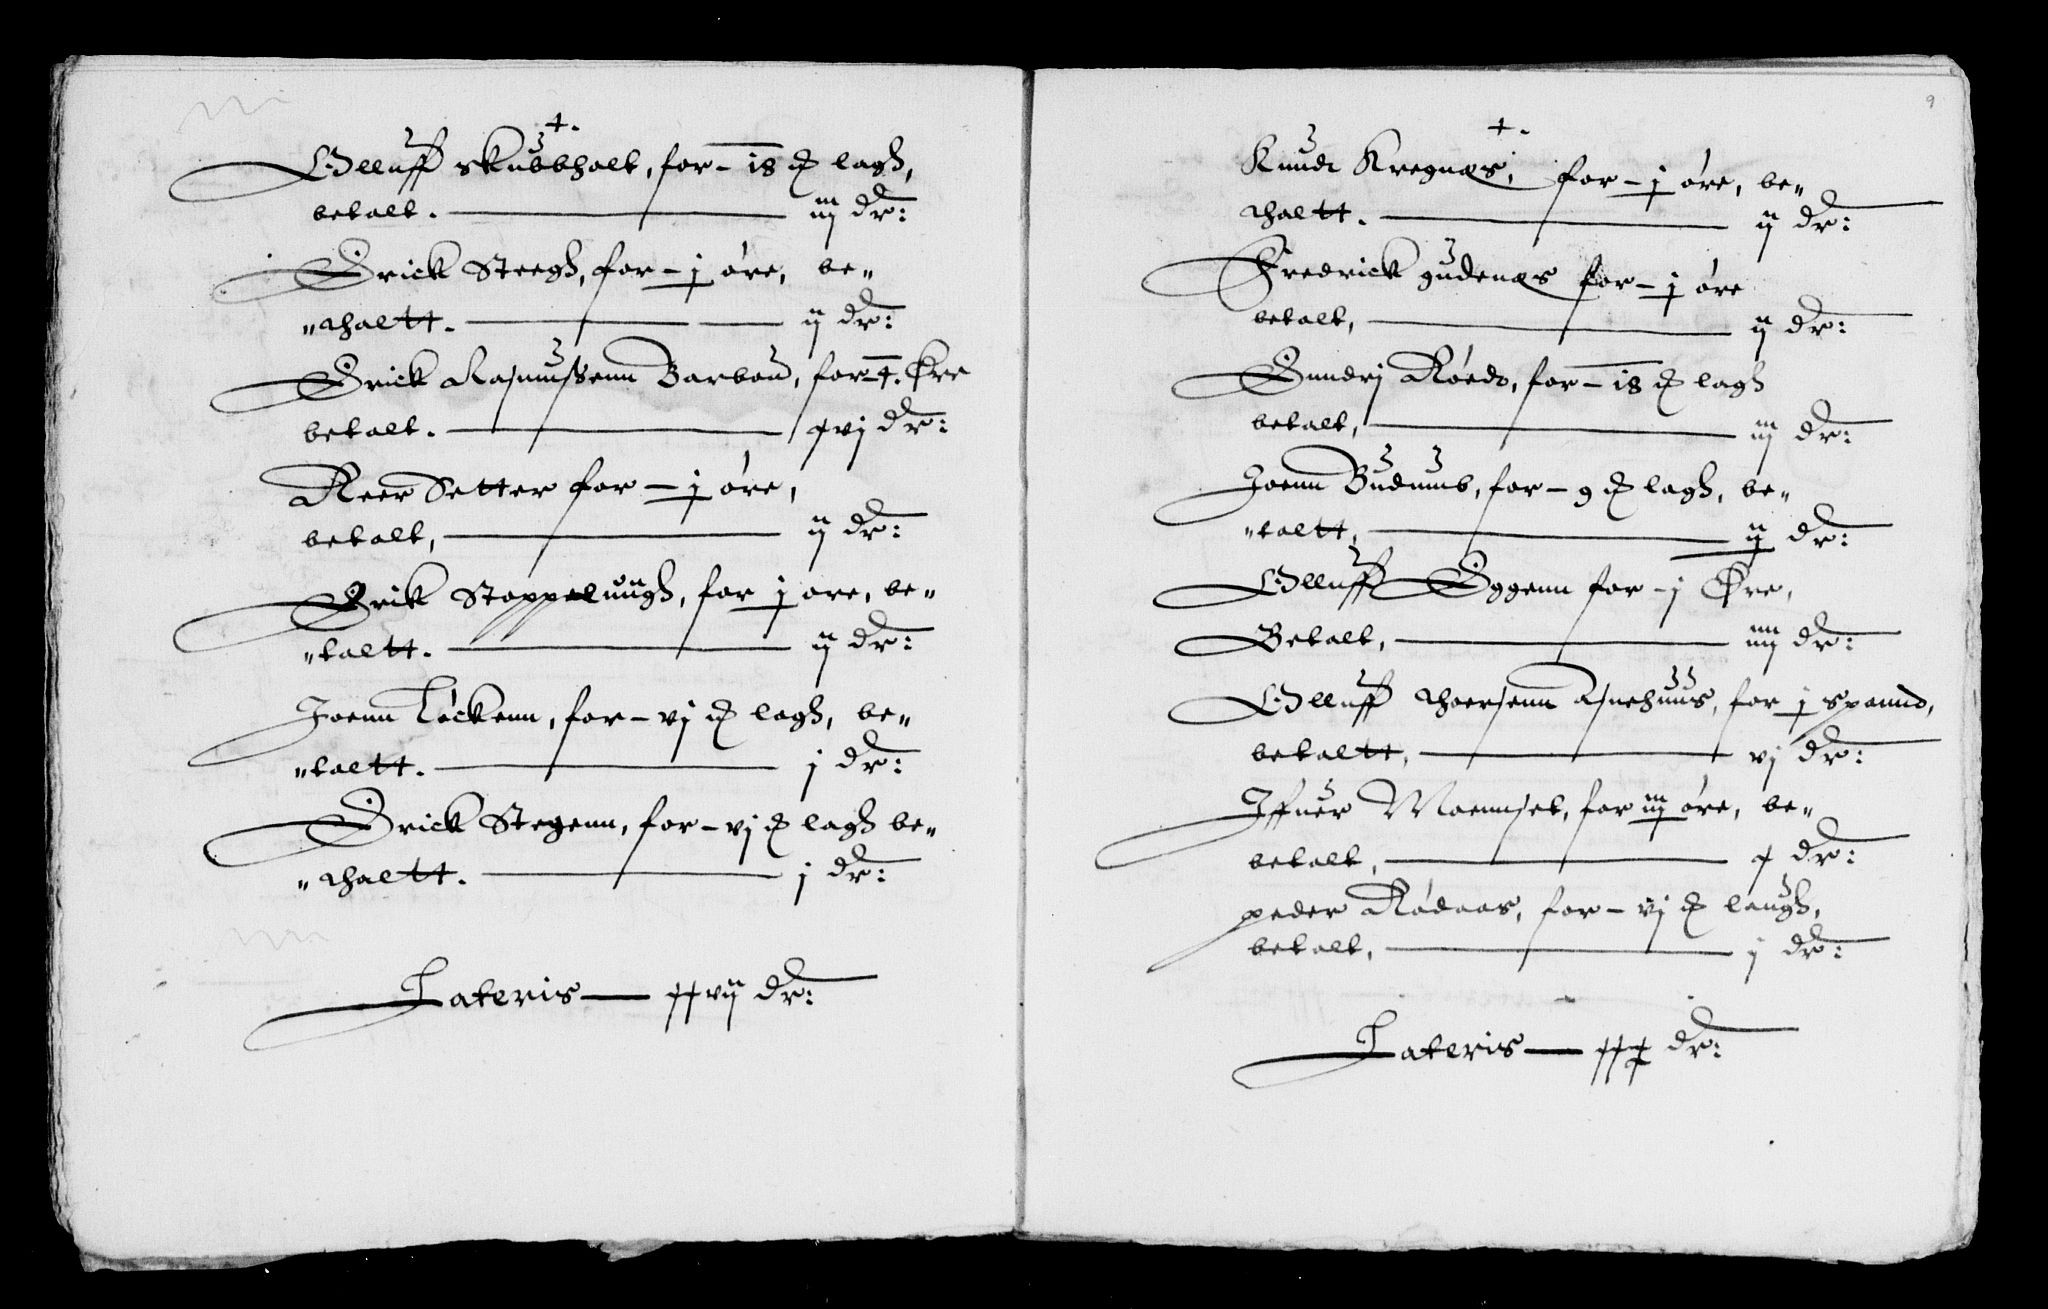 +.
Olluff skubbholt, for - 18 ₰ lagh,
betalt. — iij dr:
Erick Steegh, for - j øre, be„
„thaltt. — ij dr:
Erick Rasmussenn Barbou, for - 4. Øre
betalt. — xvj dr:
Reer Setter for - j øre,
betalt, — ij dr:
Erik Stoppelungh, for j øre, be„
„taltt. — ij dr:
Joenn Løckenn, for - vj ₰ lagh, be„
„taltt. — j dr:
Erick Stegenn, for - vj ₰ lagh be„
„thaltt. — j dr:
Lateris — xxvij dr:
9
+.
Knudt Kregnæs, for - j øre, be„
thaltt. — ij dr:
Fredrick gudenæs for - j øre
betalt, — ij dr:
Endrj Røedt, for - 18 ₰ lagh
betalt, — iij dr:
Joenn Budumb, for - 9 ₰ lagh, be„
„taltt, — ij dr:
Olluff Eggenn for - j Øre,
Betalt, — iiij dr:
Olluff thoersenn Asnehuus, for j spannd,
betaltt, — vj dr:
Iffuer Moennset, for iij øre, be„
betalt, — x dr:
peder Rødaas, for - vj ₰ laugh,
betalt, — j dr:
Lateris — dr: